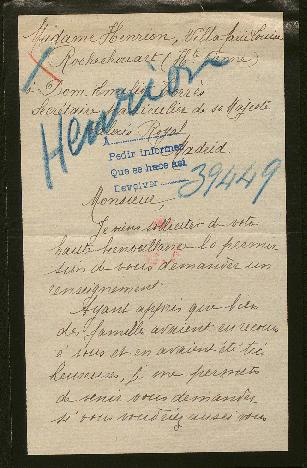 Madame Henrion, Villa Marie Louise
Rochechouart (Hte Vienne)
à Dom Emilio Torrès
Secrétaire particulier de sa Majesté
Palais Royal
Madrid
Henrion
A
Pedir informes
Que se hace así
Devolver
39449
Monsieur,
Je viens solliciter de votre
haute bienveillance la permis
sion de vous demander un
renseignement.
Ayant appris que bien
des familles avaient eu recours
à vous et en avaient été très
heureuses, je me permets
de venir vous demander
si vous voudriez aussi vous